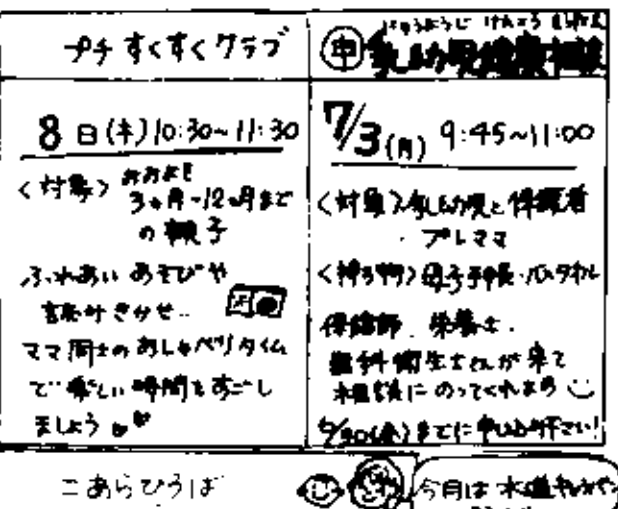 プチ すくすくクラブ
8日(木)10:30~11:30
<対象> おおよそ
3ヶ月~12ヶ月まで
の親子
ふれあい あそびや
読み聞かせ..
ママ同士の おしゃべりタイム
で 楽しい時間を すごし
ましょう
にゅうようじ けんこう そうだん
申 乳幼児健康相談
7/3(月) 9:45~11:00
<対象>乳幼児と保護者
・プレママ
<持ち物>母子手帳・バスタオル
保健師. 栄養士.
歯科衛生士さんが来て
相談に のってくれます
までに申し込み下さい!
こあらひろば
今月は